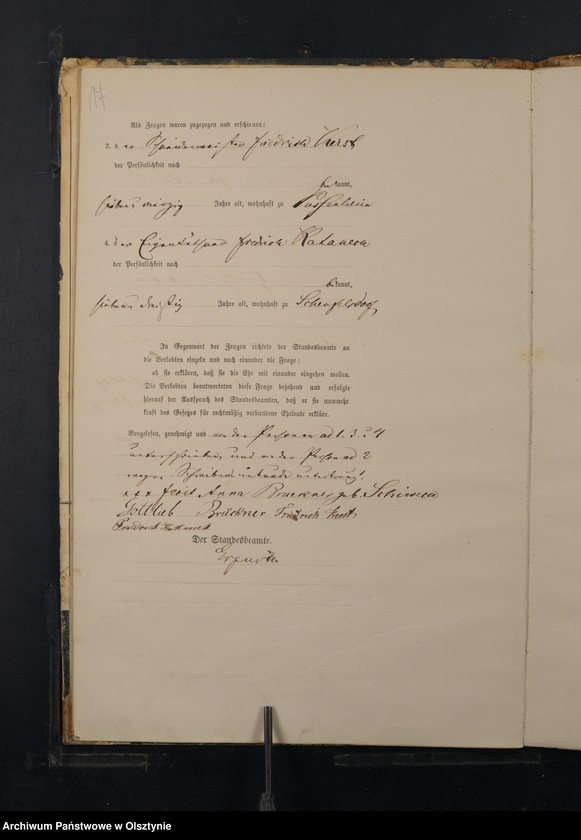 17
Als Zeugen waren zugezogen und erschienen:
3. der Schneidermeister Friedrich Kerst
der Persönlichkeit nach
bekannt,
sieben vierzig Jahre alt, wohnhaft zu Passenheim
4. der Eigenkäthner Friedrich
der Persönlichkeit nach
bekannt,
sieben dreißig Jahre alt, wohnhaft zu
In Gegenwart der Zeugen richtete der Standesbeamte an
die Verlobten einzeln und nach einander die Frage:
ob sie erklären, daß sie die Ehe mit einander eingehen wollen.
Die Verlobten beantworteten diese Frage bejahend und erfolgte
hierauf der Ausspruch des Standesbeamten, daß er sie nunmehr
kraft des Gesetzes für rechtmäßig verbundene Eheleute erkläre.
Vorgelesen, genehmigt und von den Personen ad 1. 3. u. 4
unterschrieben, und von der Person ad 2
wegen Schreibensunkunde unterkreuzt.
xxx Anna Brueckner geb.
Gottlieb Brückner Friedrich Kerst
Der Standesbeamte.
Archiwum Państwowe w Olsztynie